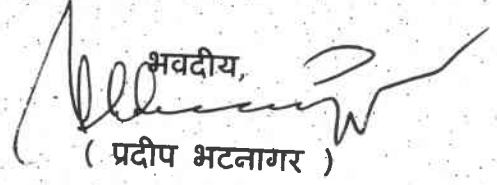 भवदीय,
( प्रदीप भटनागर )